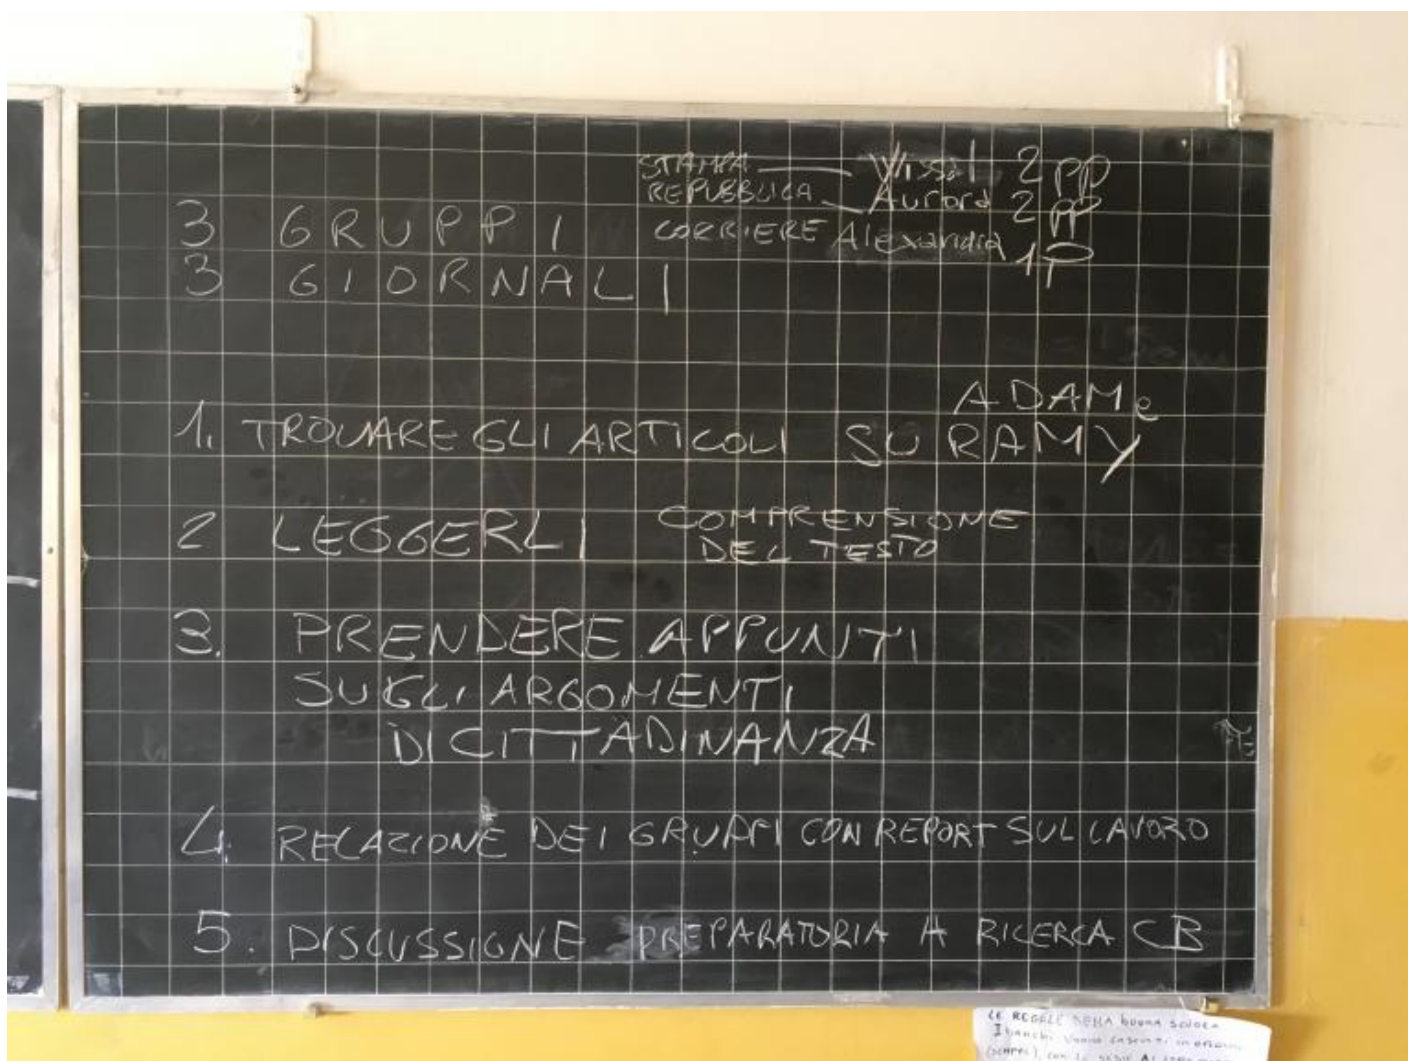 STAMPA Wissal 2 PP
REPUBBLICA Aurora 2 PP
CORRIERE Alexandra 1P
3 GRUPPI
3 GIORNALI
ADAM e
1. TROVARE GLI ARTICOLI SU RAMY
2 LEGGERLI COMPRENSIONE
DEL TESTO
3. PRENDERE APPUNTI
SUGLI ARGOMENTI
DI CITTADINANZA
4. RELAZIONE DEI GRUPPI CON REPORT SUL LAVORO
5. DISCUSSIONE PREPARATORIA A RICERCA CB
LE REGOLE DELLA buona scuola